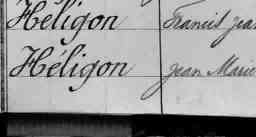 Héligon Francis Jean
Héligon Jean Marie